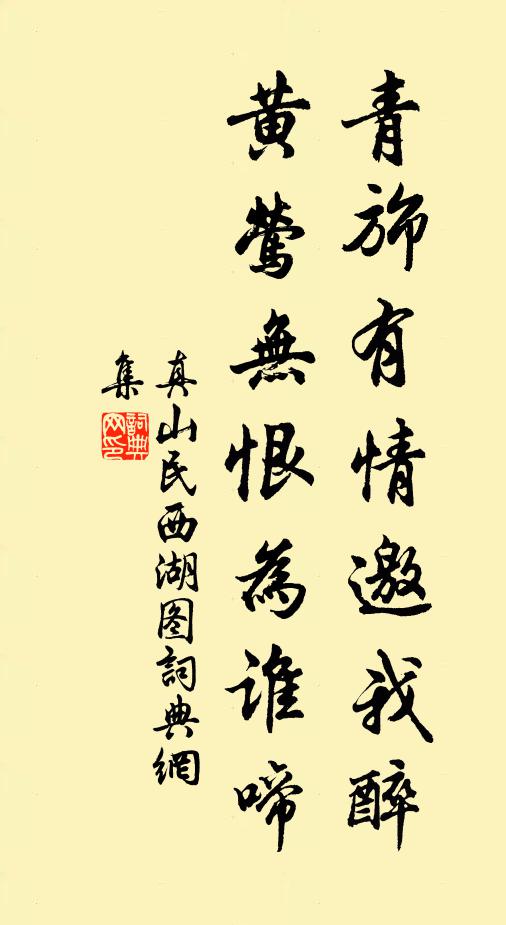 青旆有情邀我醉
黃鶯無恨為誰啼
真山民西湖图詞典網
集
詞典網印